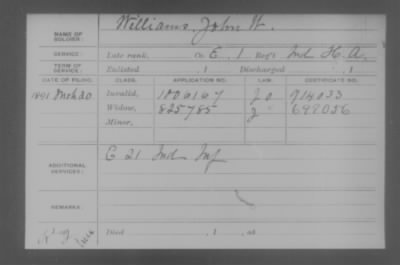 NAME OF SOLDIER: Williams, John W.
SERVICE: Late rank, Co. E, 1 Reg't Ind. H. A.
TERM OF SERVICE: Enlisted , 1 Discharged , 1
DATE OF FILING. CLASS. APPLICATION NO. LAW. CERTIFICATE NO.
1891 Mch 20 Invalid, 1006167 914033
Widow, 825785 698056
Minor,
ADDITIONAL SERVICES: C 21 Ind Inf
REMARKS:
Died , 1 , at